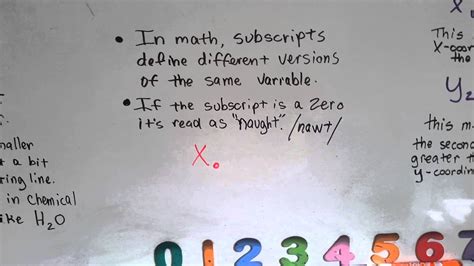 • In math, subscripts
define different versions
of the same variable.
• If the subscript is a zero
it's read as "naught". /nawt/
X₀
maller
a bit
ring line.
in chemical
ike H₂O
X
This
X-coor
the
Y₂
this m
the secon
greater th
y-coordin
0 1 2 3 4 5 6 7